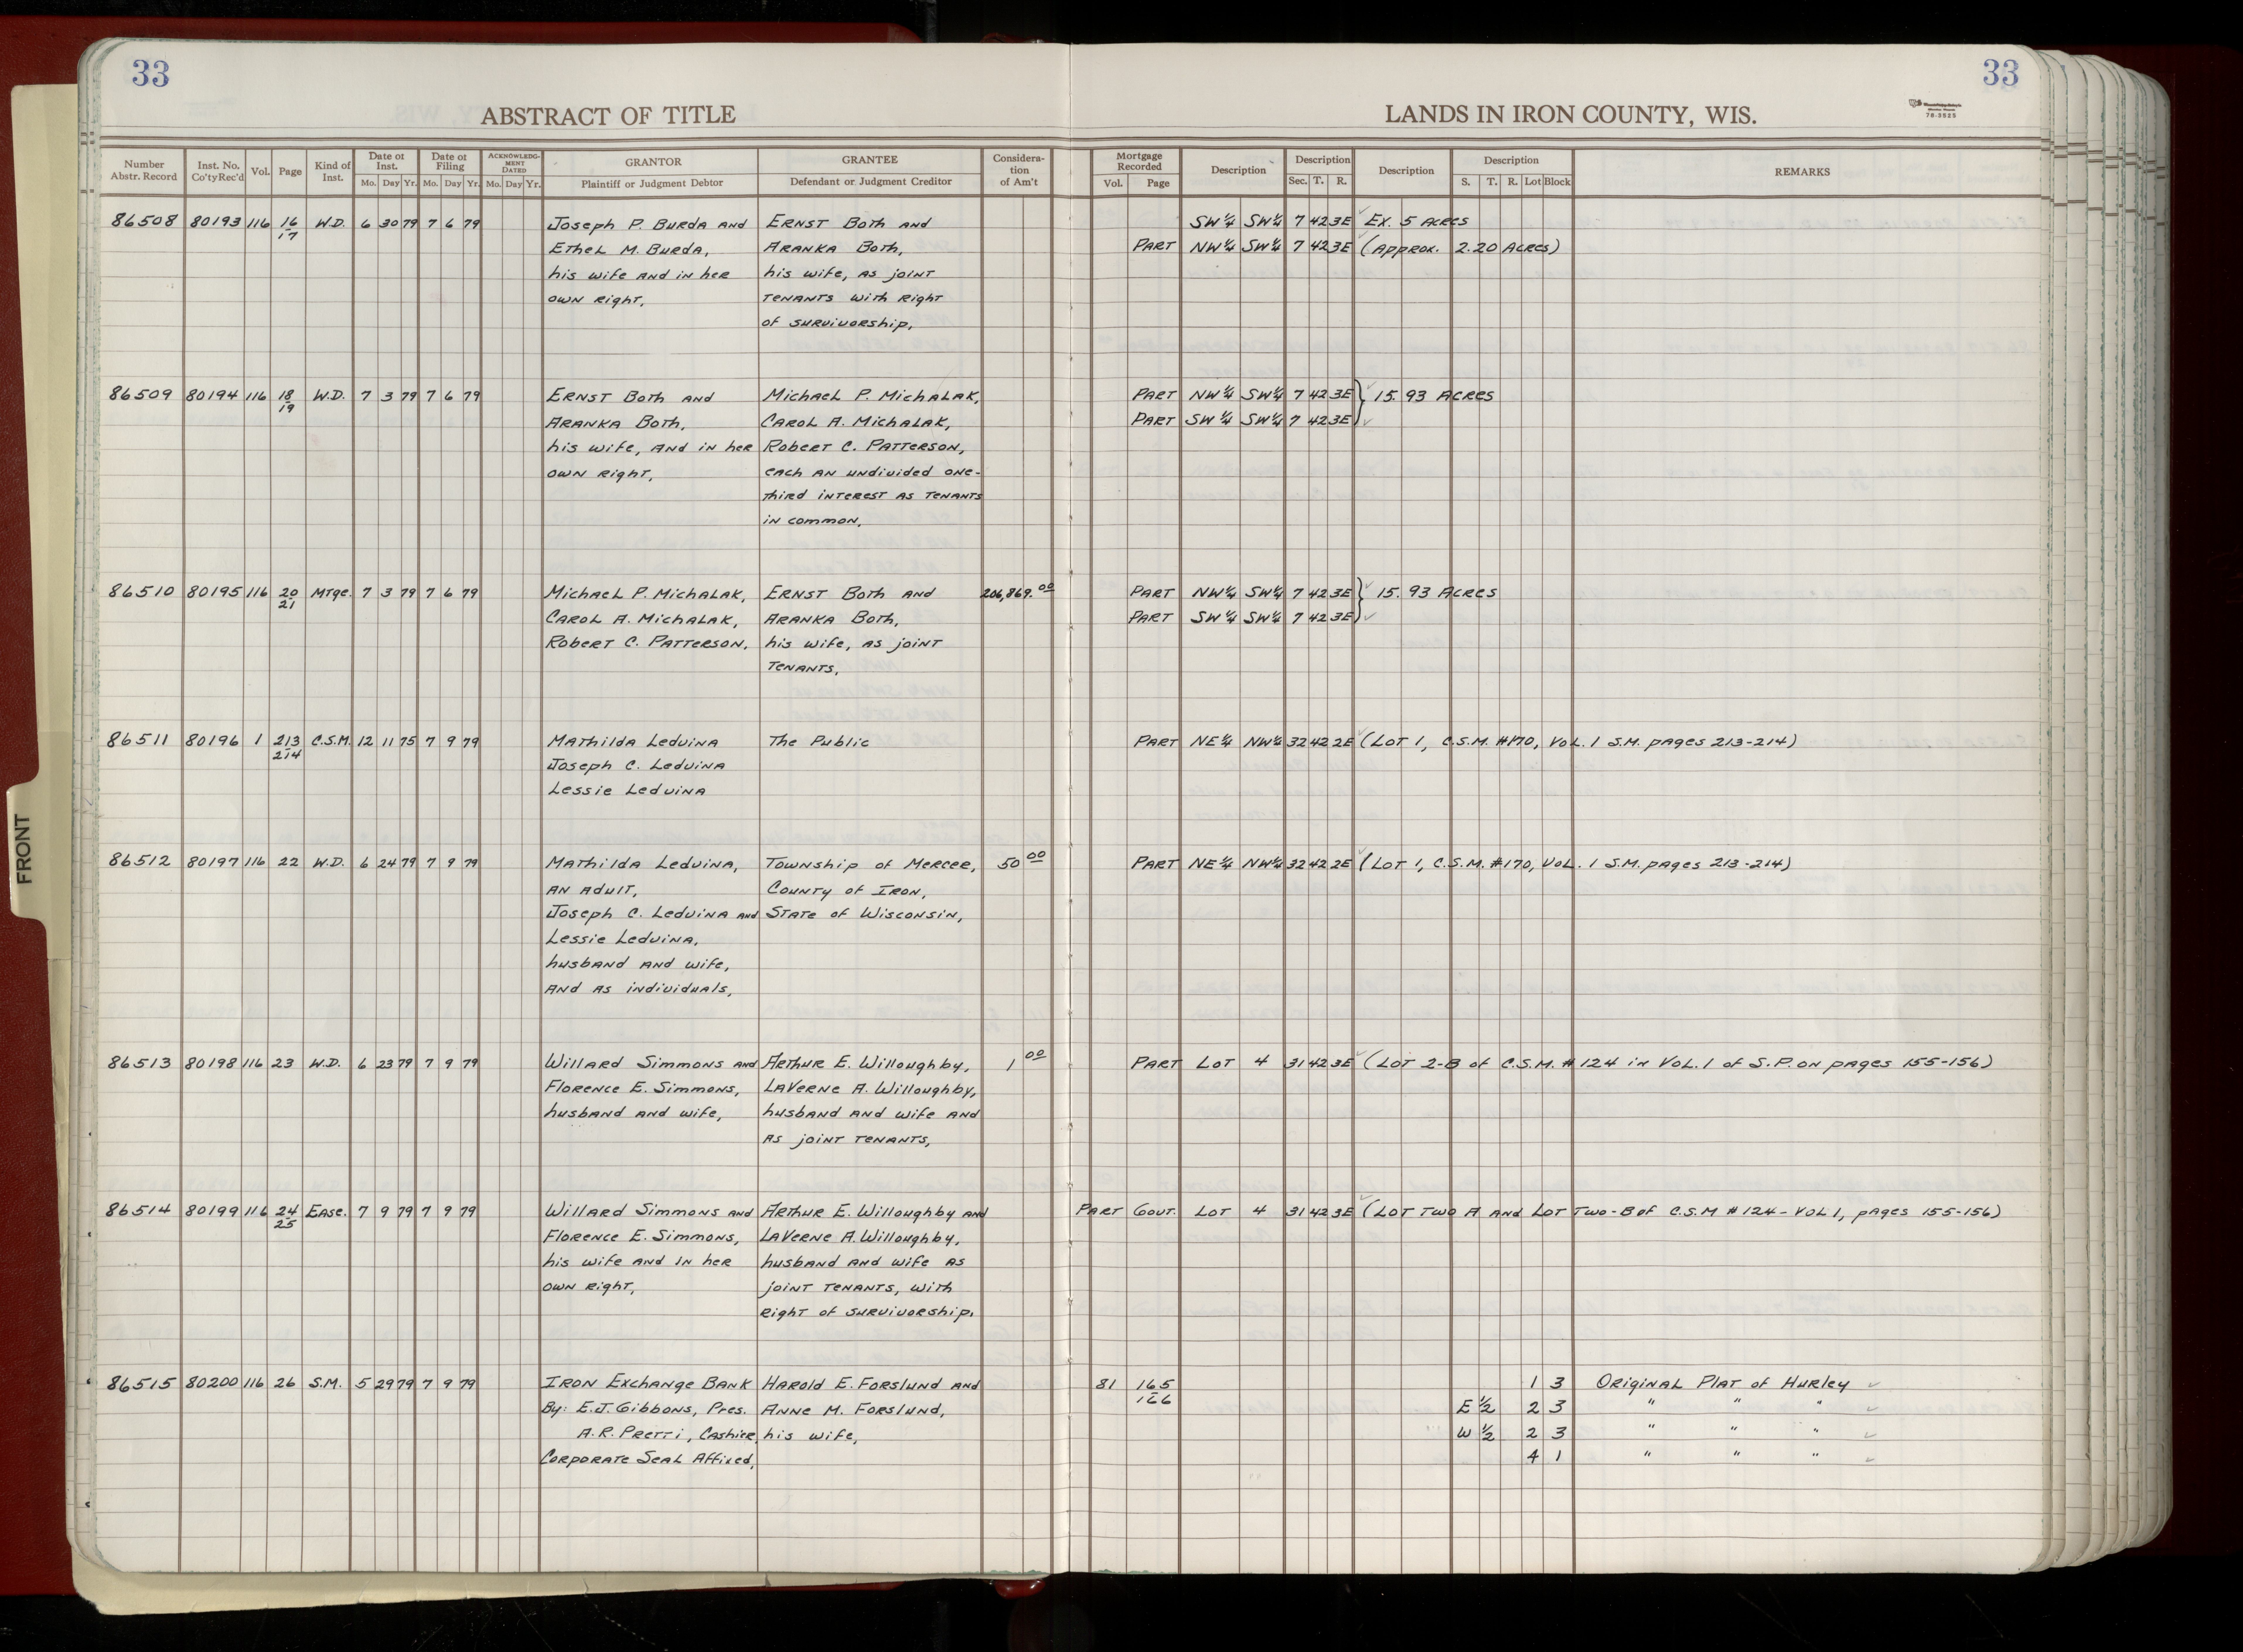 33
33
ABSTRACT OF TITLE
LANDS IN IRON COUNTY, WIS.
78-3925
Number Abstr. Record | Inst. No. Co'ty Rec'd | Vol. | Page | Kind of Inst. | Date of Inst. Mo. Day Yr. | Date of Filing Mo. Day Yr. | ACKNOWLEDGMENT DATED Mo. Day Yr. | GRANTOR Plaintiff or Judgment Debtor | GRANTEE Defendant or Judgment Creditor | Consideration of Am't | Mortgage Recorded Vol. Page | Description | Description Sec. T. R. | Description | Description S. T. R. Lot Block | REMARKS
86508 80193 116 16/17 W.D. 6 30 79 7 6 79 Joseph P. Burda and | Ernst Both and | SW¼ SW¼ 7 42 3E Ex. 5 Acres
Ethel M. Burda, | Aranka Both, | Part NW¼ SW¼ 7 42 3E (Approx. 2.20 Acres)
his wife and in her | his wife, as joint
own right, | tenants with right
of survivorship,
86509 80194 116 18/19 W.D. 7 3 79 7 6 79 Ernst Both and | Michael P. Michalak, | Part NW¼ SW¼ 7 42 3E } 15.93 Acres
Aranka Both, | Carol A. Michalak, | Part SW¼ SW¼ 7 42 3E
his wife, and in her | Robert C. Patterson,
own right, | each an undivided one-
third interest as tenants
in common,
86510 80195 116 20/21 Mtge. 7 3 79 7 6 79 Michael P. Michalak, | Ernst Both and | 206,869.00 | Part NW¼ SW¼ 7 42 3E } 15.93 Acres
Carol A. Michalak, | Aranka Both, | Part SW¼ SW¼ 7 42 3E
Robert C. Patterson, | his wife, as joint
tenants,
86511 80196 1 213/214 C.S.M. 12 11 75 7 9 79 Mathilda Leduina | The Public | Part NE¼ NW¼ 32 42 2E (Lot 1, C.S.M. #170, Vol. 1 S.M. pages 213-214)
Joseph C. Leduina
Lessie Leduina
86512 80197 116 22 W.D. 6 24 79 7 9 79 Mathilda Leduina, | Township of Mercer, | 50 00 | Part NE¼ NW¼ 32 42 2E (Lot 1, C.S.M. #170, Vol. 1 S.M. pages 213-214)
an adult, | County of Iron,
Joseph C. Leduina and | State of Wisconsin,
Lessie Leduina,
husband and wife,
and as individuals,
86513 80198 116 23 W.D. 6 23 79 7 9 79 Willard Simmons and | Arthur E. Willoughby, | 1 00 | Part Lot 4 31 42 3E (Lot 2-B of C.S.M. #124 in Vol. 1 of S.P. on pages 155-156)
Florence E. Simmons, | LaVerne A. Willoughby,
husband and wife, | husband and wife and
as joint tenants,
86514 80199 116 24/25 Ease. 7 9 79 7 9 79 Willard Simmons and | Arthur E. Willoughby and | Part Govt. Lot 4 31 42 3E (Lot Two A and Lot Two-B of C.S.M #124- Vol 1, pages 155-156)
Florence E. Simmons, | LaVerne A. Willoughby,
his wife and in her | husband and wife as
own right, | joint tenants, with
right of survivorship,
86515 80200 116 26 S.M. 5 29 79 7 9 79 Iron Exchange Bank | Harold E. Forslund and | 81 165/166 | 1 3 Original Plat of Hurley
By: E.J. Gibbons, Pres. | Anne M. Forslund, | E ½ 2 3 " " "
A.R. Pretti, Cashier, | his wife, | W ½ 2 3 " " "
Corporate Seal Affixed, | 4 1 " " "
FRONT